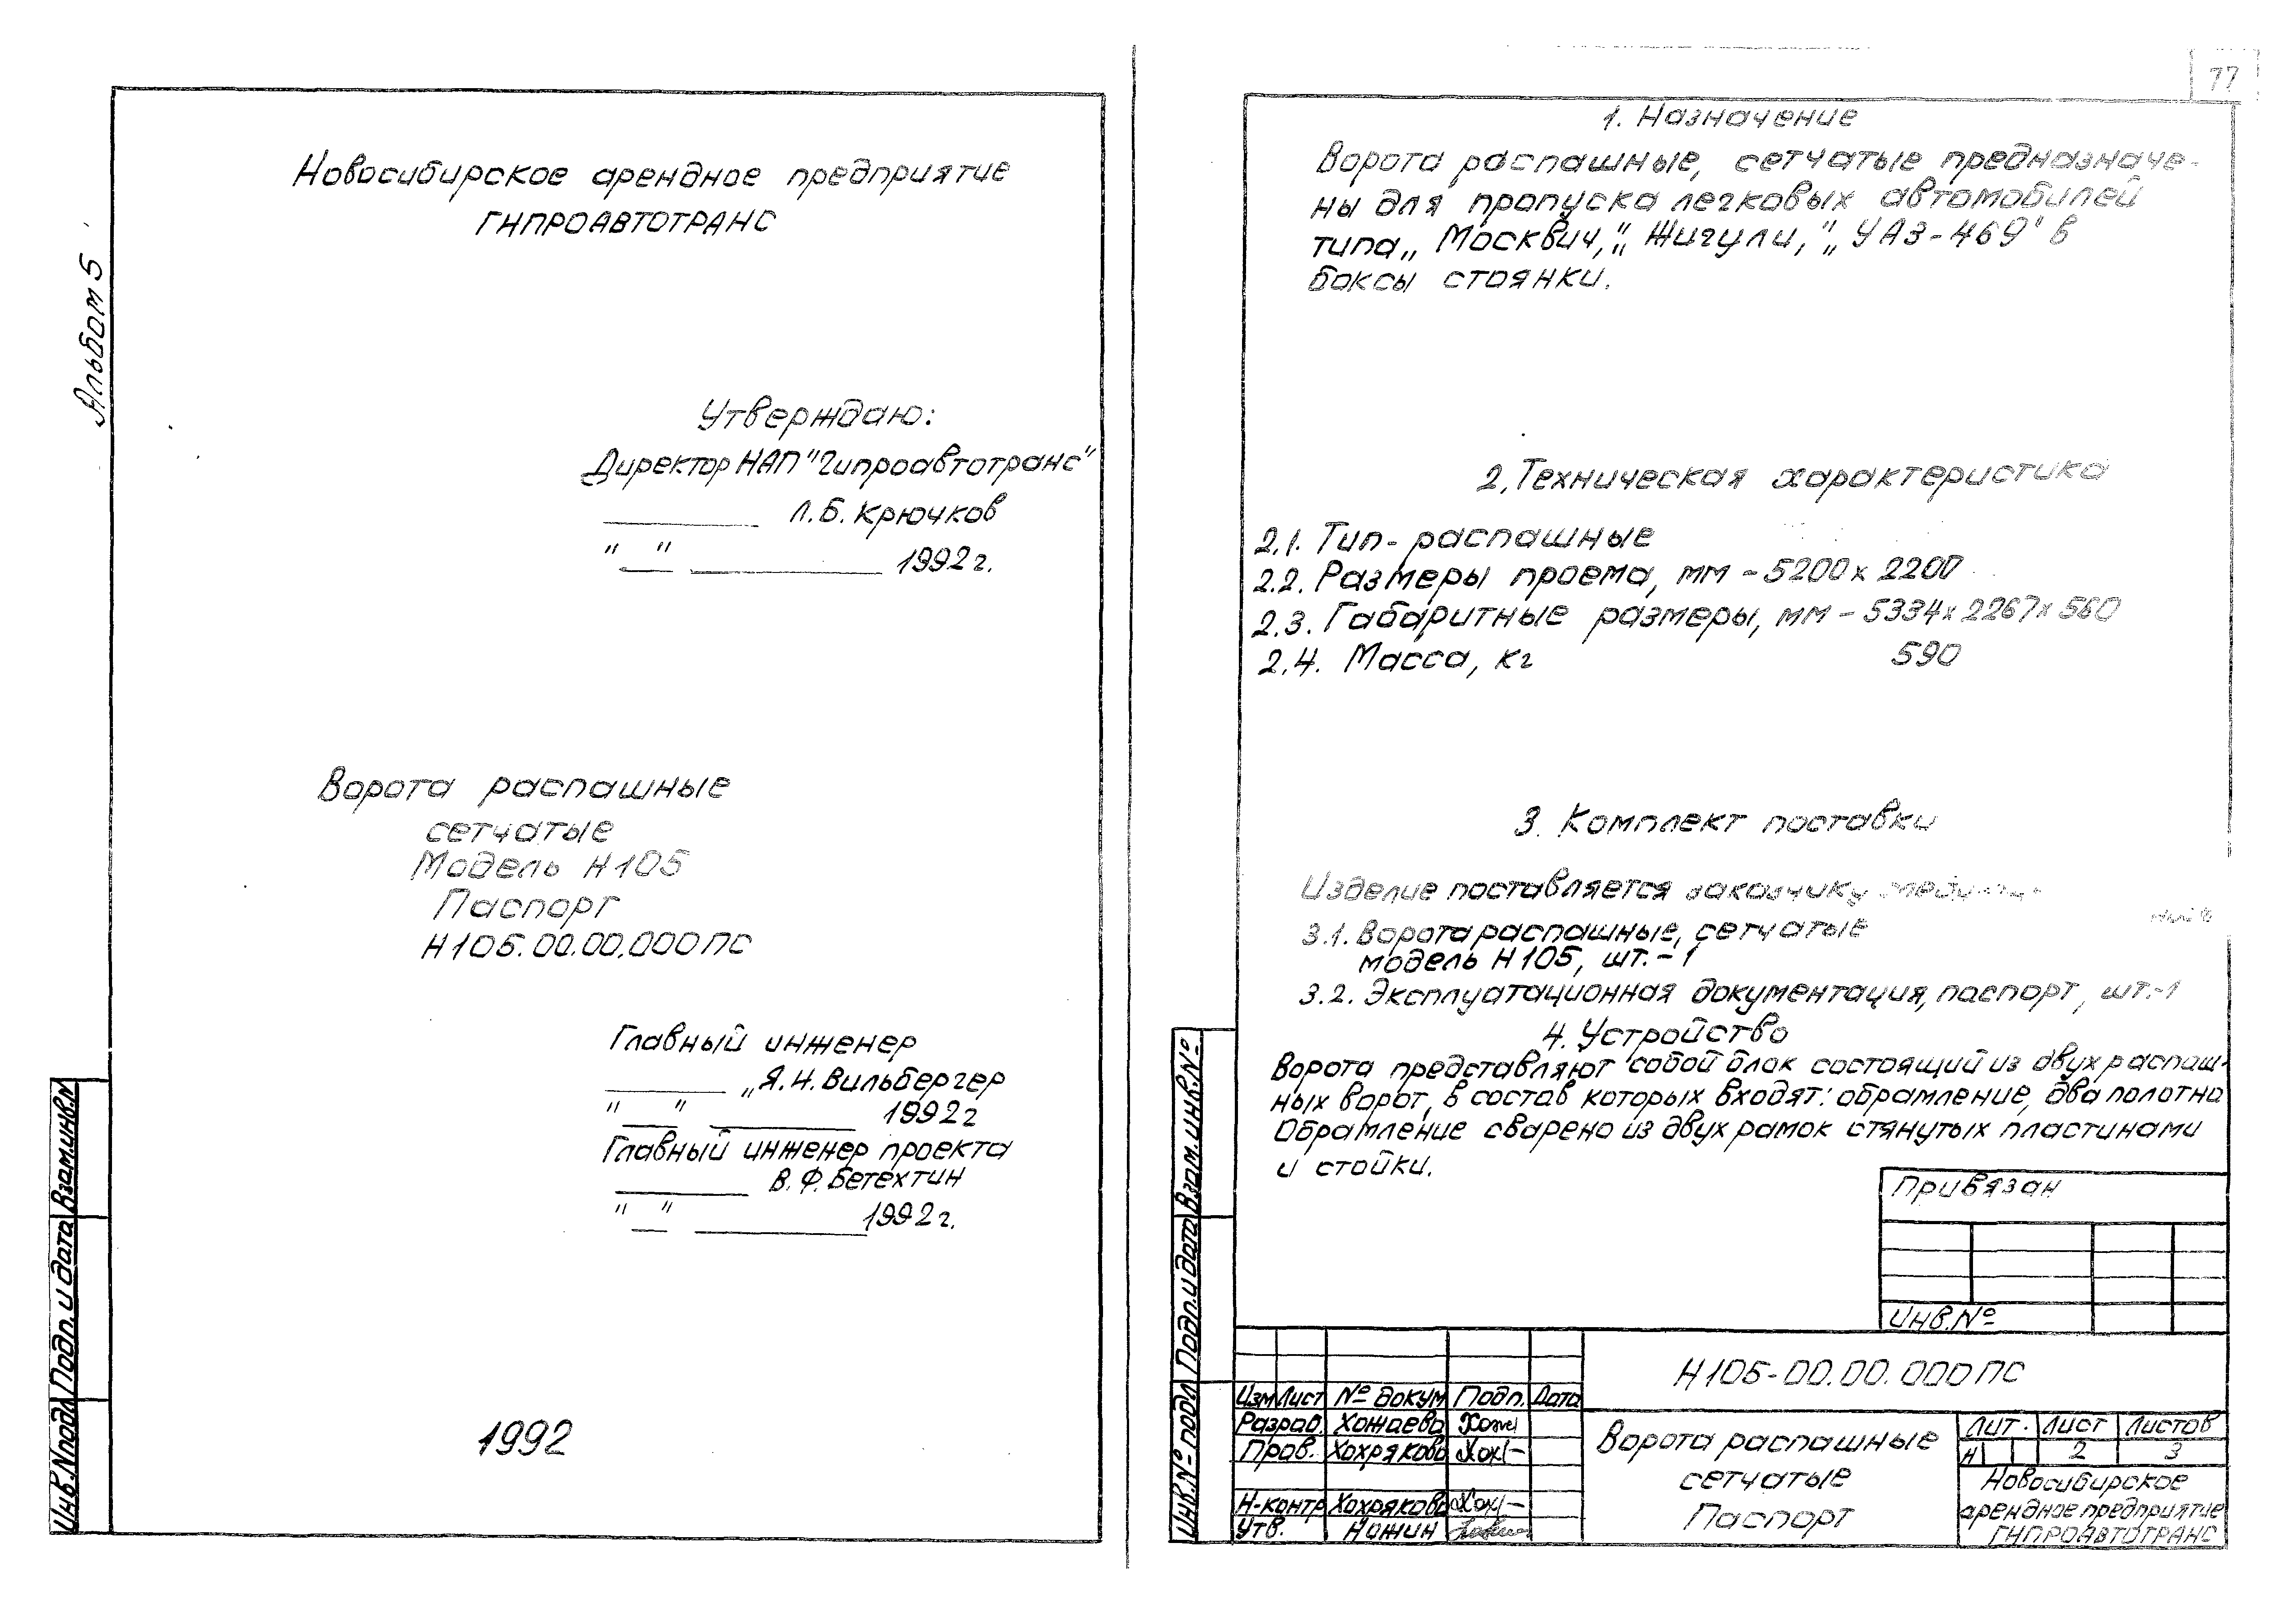 Альбом 5
Новосибирское арендное предприятие
ГИПРОАВТОТРАНС
Утверждаю:
Директор НАП "Гипроавтотранс"
Л.Б. Крючков
" " 1992 г.
Ворота распашные
сетчатые
Модель Н105
Паспорт
Н105.00.00.000 ПС
Главный инженер
„Я.И. Вильбергер
" " 1992 г
Главный инженер проекта
В.Ф. Бетехтин
" " 1992 г.
1992
Инв.N подл Подп. и дата Взам.инв.N
77
1. Назначение
Ворота распашные, сетчатые предназначе-
ны для пропуска легковых автомобилей
типа „Москвич,“ „Жигули,“ „УАЗ-469" в
боксы стоянки.
2. Техническая характеристика
2.1. Тип - распашные
2.2. Размеры проема, мм - 5200 х 2200
2.3. Габаритные размеры, мм - 5334 х 2267 х 560
2.4. Масса, кг 590
3. Комплект поставки
Изделие поставляется заказчику
3.1. Ворота распашные, сетчатые
модель Н105, шт. - 1
3.2. Эксплуатационная документация, паспорт, шт.-1
4. Устройство
Ворота представляют собой блок состоящий из двух распаш-
ных ворот, в состав которых входят: обрамление, два полотна
Обрамление сварено из двух рамок стянутых пластинами
и стойки.
Привязан
Инв.№
Инв.№ подл Подп. и дата Взам.инв.№
Н105-00.00.000 ПС
Изм Лист № докум Подп. Дата
Разраб. Хожаева
Пров. Хохрякова
Н-контр Хохрякова
Утв. Ножин
Ворота распашные
сетчатые
Паспорт
Лит. Лист Листов
И 2 3
Новосибирское
арендное предприятие
ГИПРОАВТОТРАНС